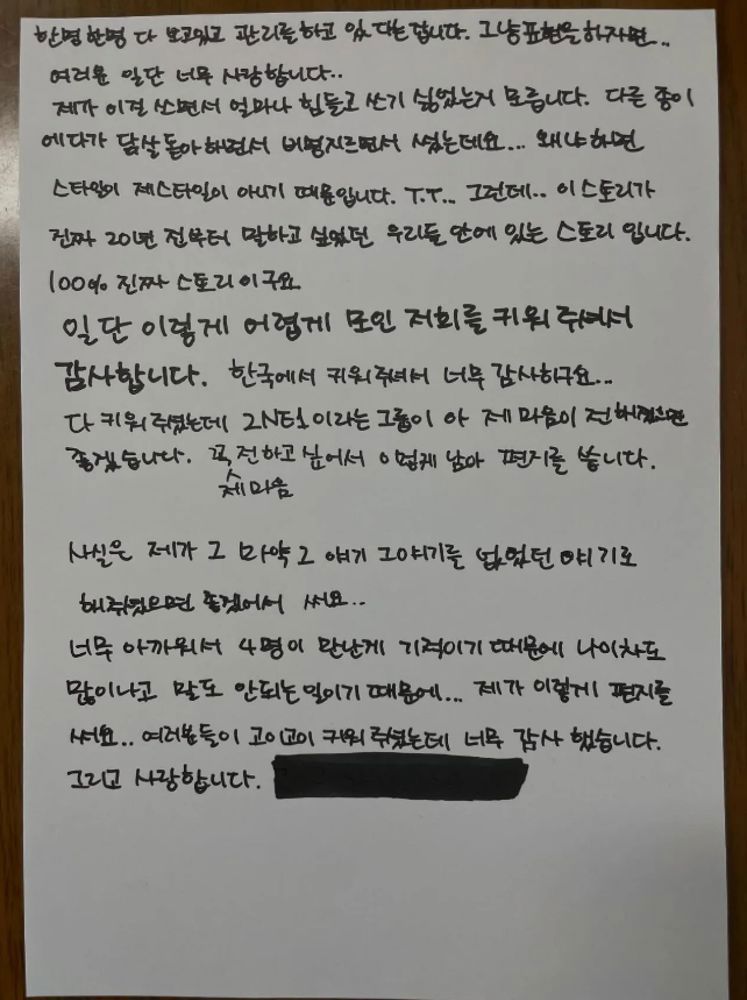 한명한명 다 보고있고 관리를하고 있다는겁니다. 그냥표현을하자면..
여러분 일단 너무 사랑합니다..
제가 이걸 쓰면서 얼마나 힘들고 쓰기 싫었는거 모릅니다. 다른 종이
에다가 닭살돋아하면서 비명지르면서 썼는데요... 왜냐하면
스타일이 제스타일이 아니기 때문입니다. T.T.. 그런데.. 이스토리가
진짜 20년 전부터 말하고 싶었던 우리들 안에 있는 스토리 입니다.
100% 진짜 스토리이구요
일단 이렇게 어렵게 모인 저희를 키워주셔서
감사합니다. 한국에서 키워주셔서 너무 감사하구요...
다 키워주셨는데 2NE1이라는그룹이 아 제 마음이 전해졌으면
좋겠습니다. 꼭 전하고싶어서 이렇게 남아 편지를 씁니다.
제마음
사실은 제가 그 마약 그 얘기 그얘기를 없었던 얘기로
해주셨으면 좋겠어서 써요..
너무 아까워서 4명이 만난게 기적이기때문에 나이차도
많이나고 말도 안되는일이기때문에... 제가 이렇게 편지를
써요.. 여러분들이 고이고이 키워주셨는데 너무 감사했습니다.
그리고 사랑합니다.